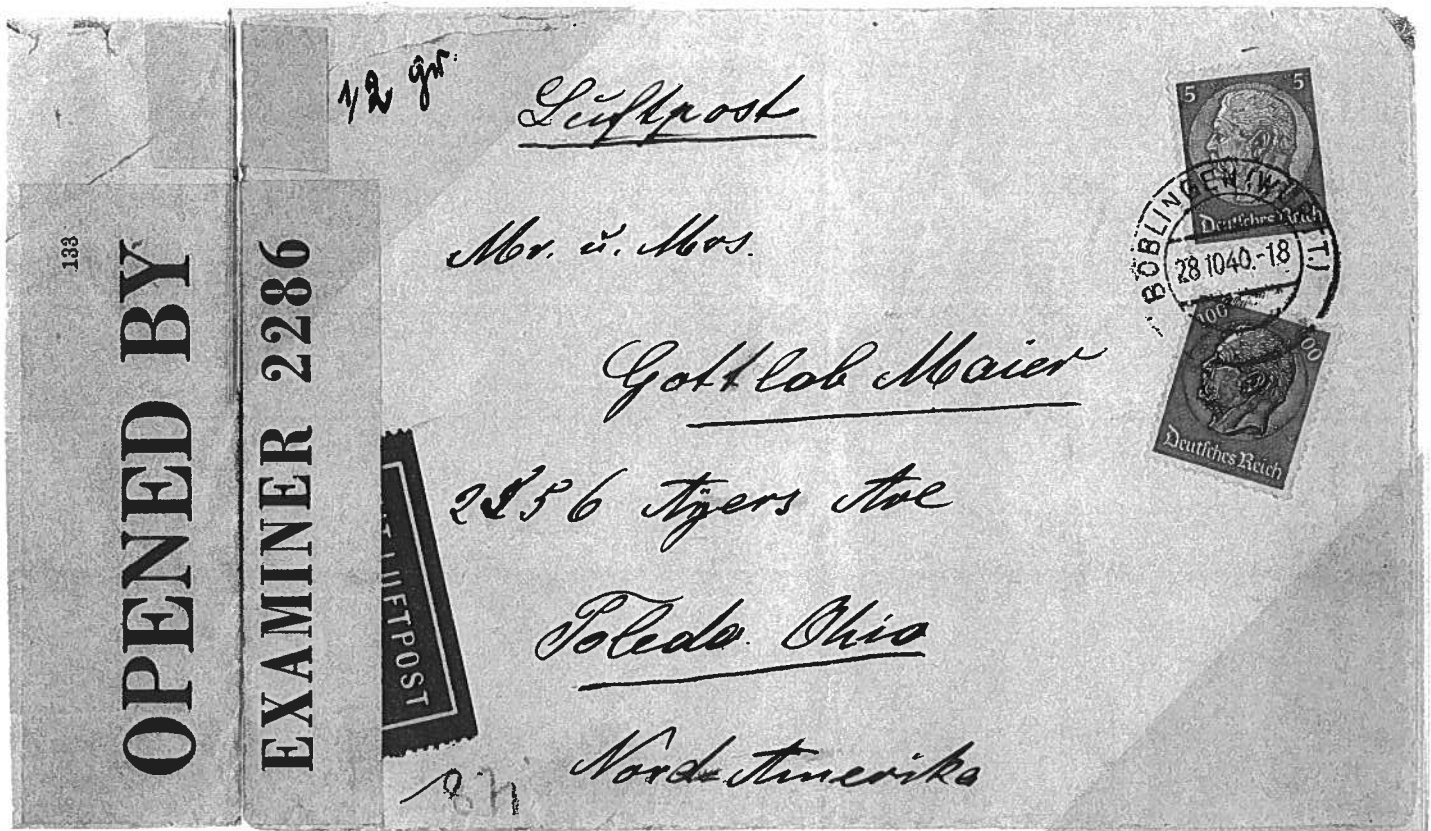 133
OPENED BY
EXAMINER 2286
1/2 gr.
Luftpost
Mr. ü. Mrs.
Gottlob Maier
2156 Ayers Ave
Toledo. Ohio
Nord-Amerika
5 5
Deutsches Reich
BÖBLINGEN (WÜRTT.)
28 10 40.-18
100 100
Deutsches Reich
LUFTPOST